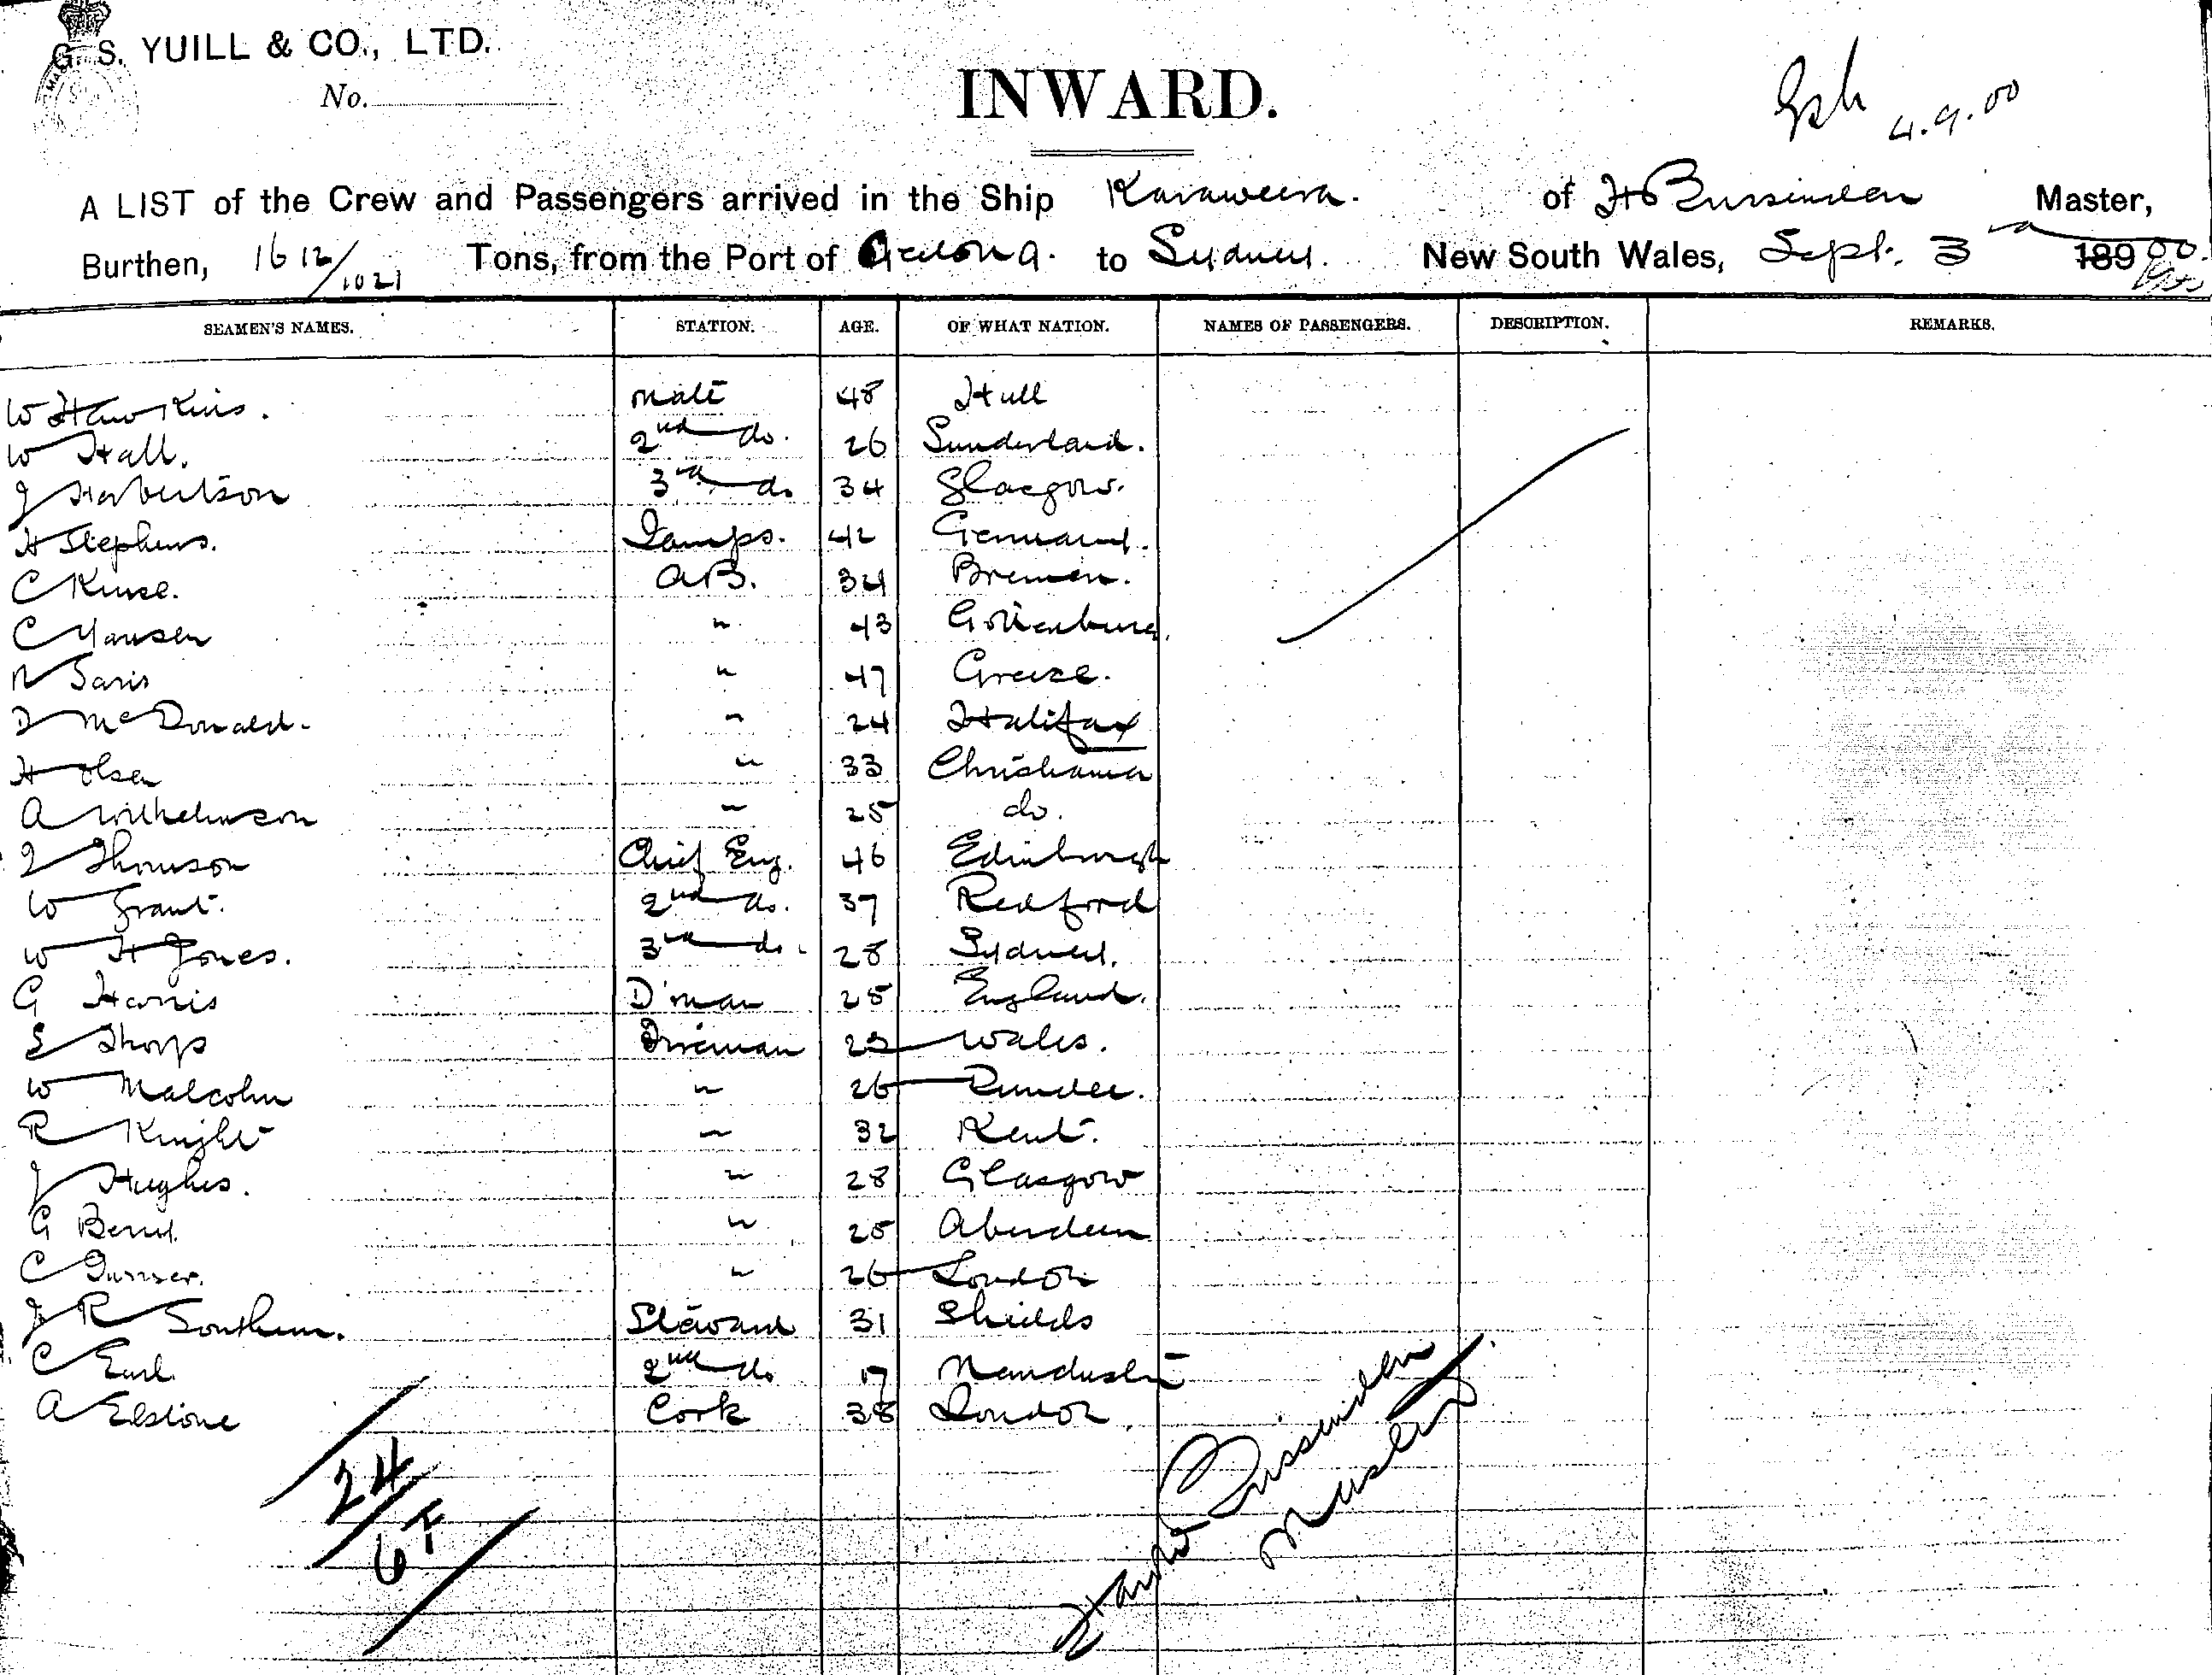 G. S. YUILL & CO., LTD.
No.
INWARD.
4.9.00
A LIST of the Crew and Passengers arrived in the Ship Karaweera. of H Bussenden Master,
Burthen, 1612/1021 Tons, from the Port of Geelong. to Sydney. New South Wales, Sept. 3rd 189 00
SEAMEN'S NAMES. STATION. AGE. OF WHAT NATION. NAMES OF PASSENGERS. DESCRIPTION. REMARKS.
W Hawkins. Mate 48 Hull
W Hall. 2nd do. 26 Sunderland.
J Harbertson 3rd do 34 Glasgow.
H Stephens. Lamps. 42 Germany.
C Kruse. A.B. 34 Bremen.
C Hansen " 43 Gottenburg.
N Saris " 47 Greece.
D McDonald. " 24 Halifax
H Olsen " 33 Christiania
A Wilhelmson " 25 do.
J Thomson Chief Eng. 46 Edinburgh
W Grant. 2nd do. 37 Redford
W H Jones. 3rd do. 28 Sydney.
G Harris D'man 25 England.
E Thorp Fireman 25 Wales.
W Malcolm " 26 Dundee.
R Knight " 32 Kent.
J Hughes. " 28 Glasgow
G Berry. " 25 Aberdeen
C Gunner. " 26 London
J R Southern. Steward 31 Shields
C Earl. 2nd do 17 Manchester
A Elstone Cook 38 London
24
6 F
Bussenden
Master